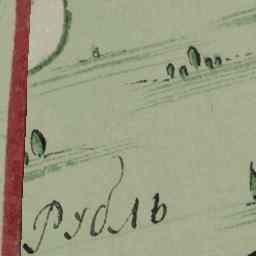 Рубль